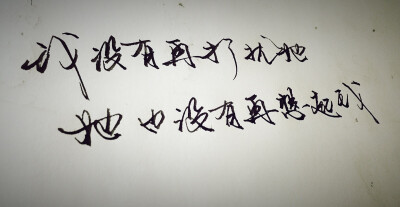 我没有再打扰她
她也没有再想起我